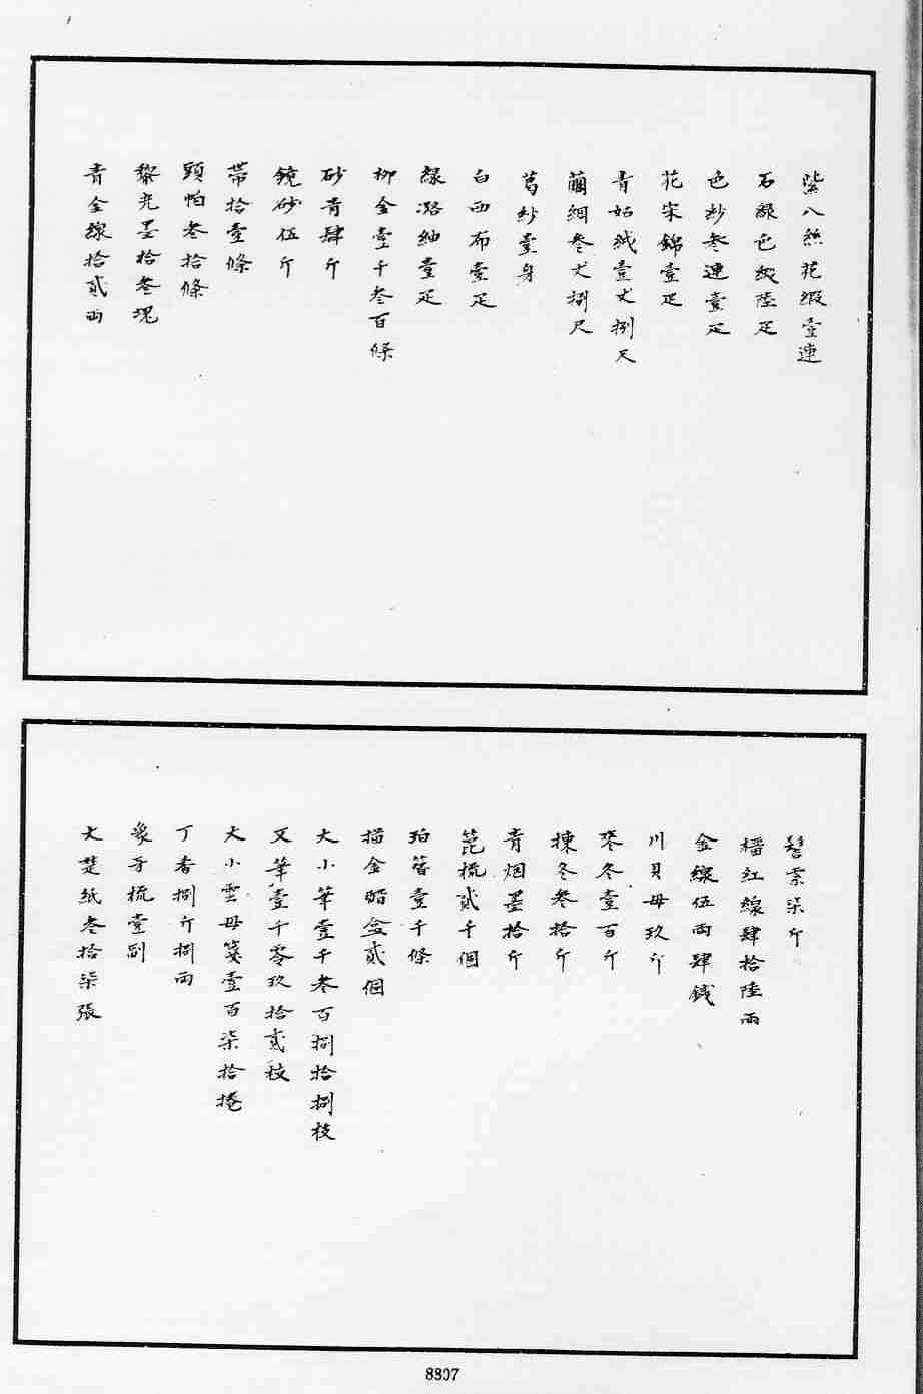 紫八絲花緞壹連
石綠色緞陸疋
色紗叁連壹疋
花宋錦壹疋
青姑絨壹丈捌尺
繭綢叁丈捌尺
葛紗壹身
白西布壹疋
綠潞紬壹疋
柳金壹千叁百條
砂青肆斤
鏡砂伍斤
帶拾壹條
頭帕叁拾條
黎光墨拾叁塊
青金線拾貳兩
柒斤
紅線肆拾陸兩
金線伍兩肆錢
川貝母玖斤
冬壹百斤
揀冬叁拾斤
青烟墨拾斤
篦梳貳千個
珀簪壹千條
描金醋盒貳個
大小筆壹千叁百捌拾捌枝
又筆壹千零玖拾貳枝
大小雲母箋壹百柒拾捲
丁香捌斤捌兩
象牙梳壹副
大楚紙叁拾柒張
8807